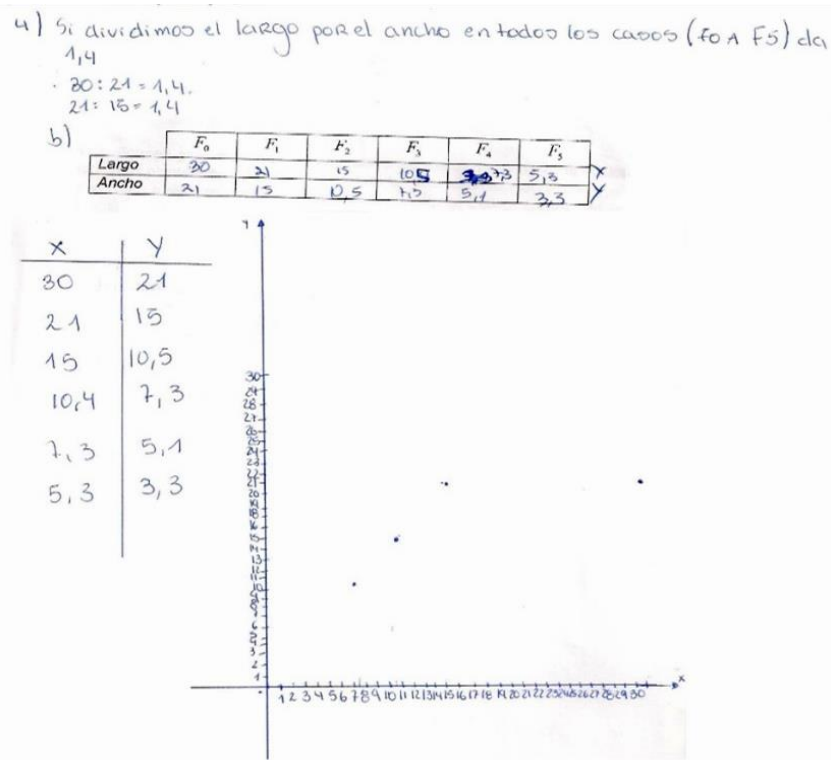 4) Si dividimos el largo por el ancho en todos los casos (F0 A F5) da
1,4
30 : 21 = 1,4.
21 : 15 = 1,4
b)
F0 F1 F2 F3 F4 F5
Largo 30 21 15 10,5 7,3 5,3 X
Ancho 21 15 10,5 7,5 5,1 3,3 Y
X Y
30 21
21 15
15 10,5
10,4 7,3
7,3 5,1
5,3 3,3
Y
30
29
28
27
26
25
24
23
22
21
20
19
18
16
15
14
13
12
11
10
9
8
7
6
5
4
3
2
1
X
1 2 3 4 5 6 7 8 9 10 11 12 13 14 15 16 17 18 19 20 21 22 23 24 25 26 27 28 29 30